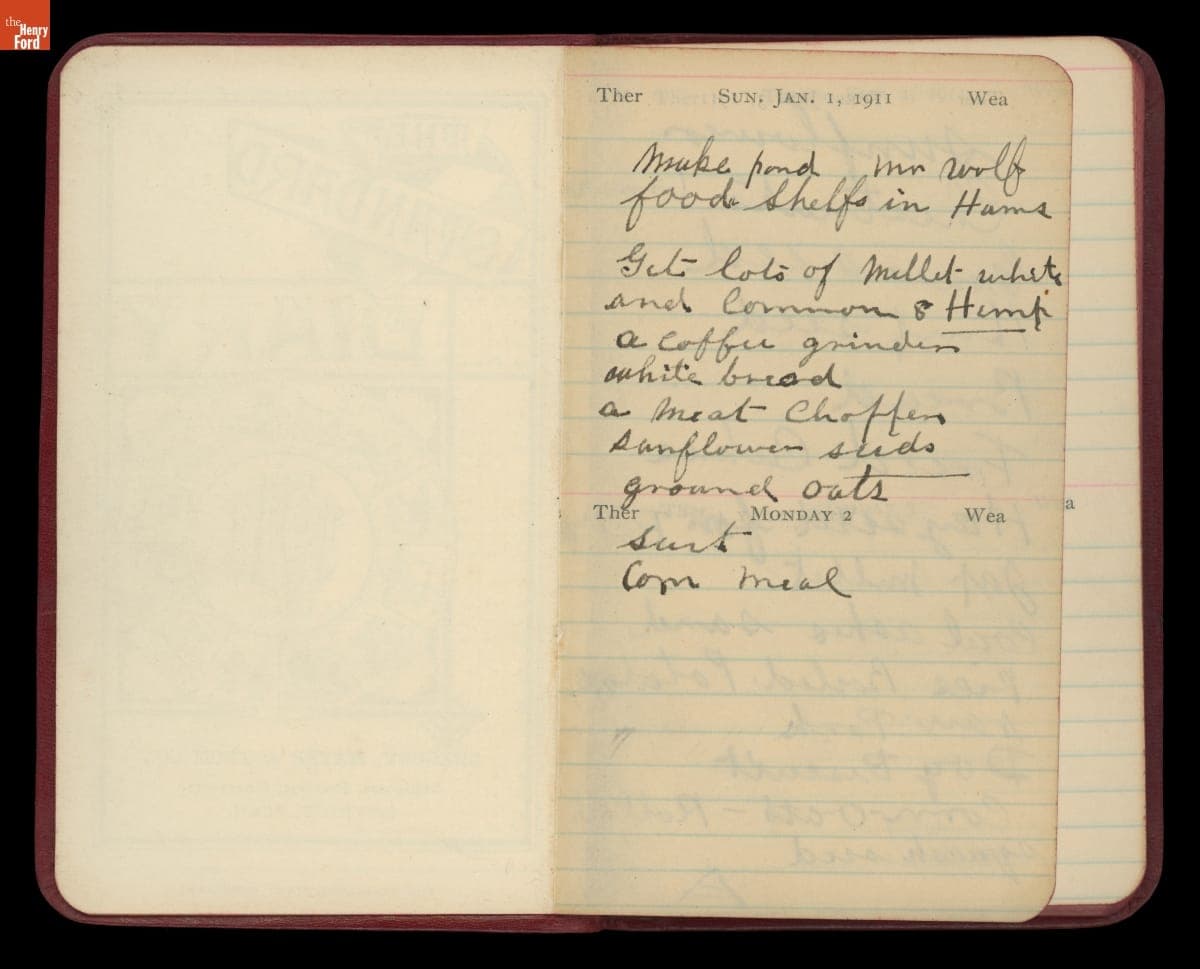 the
Henry
Ford
Ther SUN. JAN. 1, 1911 Wea
Make pond Mr Wolf
food shelfs in
Gets lots of Millet white
and Common & Hemp
a coffee grinder
white bread
a meat Chopper
sunflower seeds
ground oats
Ther MONDAY 2 Wea
suet
Corn meal
a